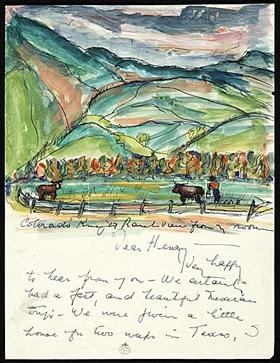 Colorado King's Ranch View from my room
Dear Henry —
Very happy
to hear from you — We certainly
had a fast, and beautiful Mexican
trip — We were given a little
house for two weeks in Texas,